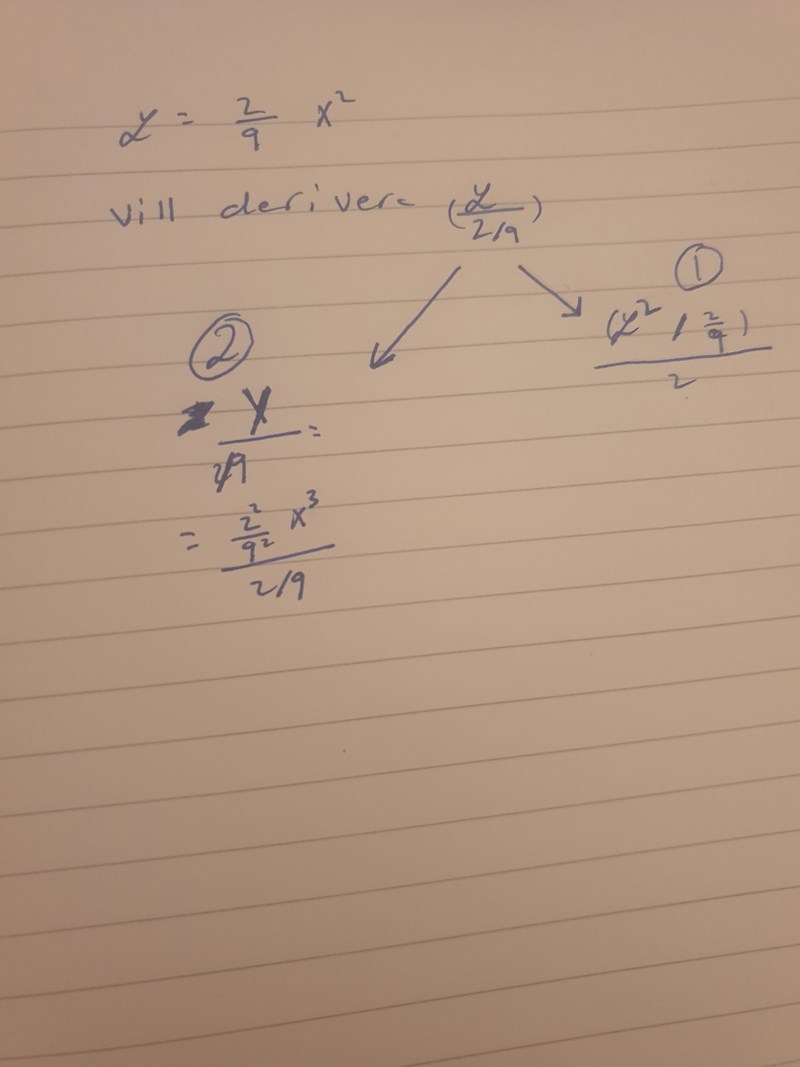 y = 2/9 x²
vill derivera (y / 2/9)
①
(y² / 2/9) / 2
②
y / 2/9 =
= 2²/9² x³ / 2/9